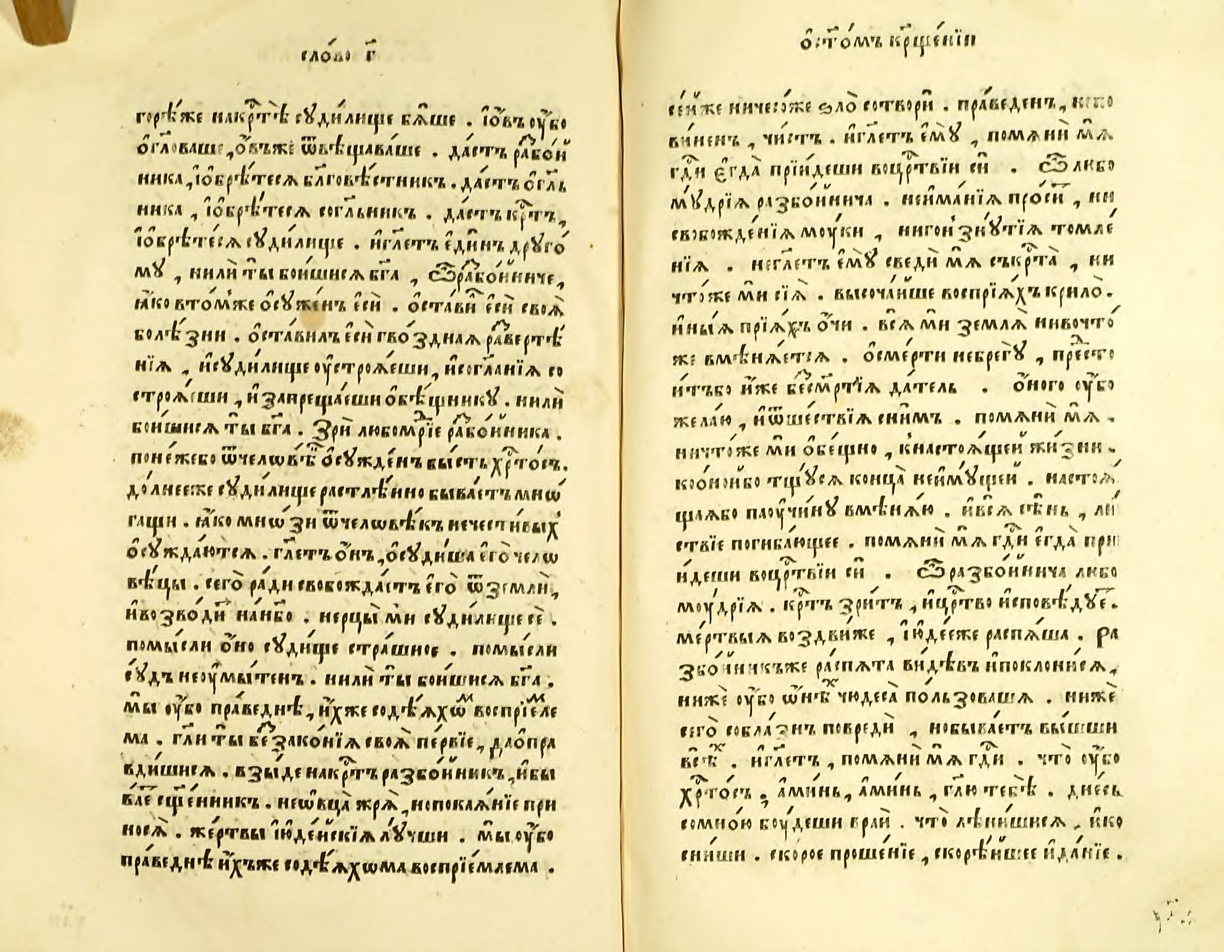 сло́во г҃
горѣ́же накр͡тѣ̀ сꙋди́лище бѧ́ше . і҆ѡ́въ ᲂу҆́бо
ѻ҆гл҃оваше, ѻ҆́въже ѿвѣщаваше . да́стъ ра͡збо́й
ника, і҆ѻбрѣ́тесѧ бл҃говѣ́стникъ . да́стъ ѻ҆гл҃ь
ника , і҆ѻбрѣ́тесѧ согл҃ьникъ . да́стъ кр͡тъ,
і҆ѻбрѣ́тесѧ сꙋди́лище . и҆гл҃етъ є҆ди́нъ дрꙋго́
мꙋ , нилѝ ты̀ бои́шисѧ бг҃а , Ѽ ра͡збо́йниче,
ꙗ҆́ко вто́мже ѻ҆сꙋже́нъ є҆сѝ . ѻ҆ста́ви͡л є҆сѝ своѧ̀
болѣ́зни . ѻ҆ста́вилъ є҆сѝ гвозднаѧ ра͡звертѣ́
нїѧ , и҆сꙋди́лище ᲂу҆строѧ́еши, и҆согла́нїѧ со
строѧ́еши , и҆запреща́еши ѻ҆бѣ́щникꙋ . нилѝ
бои́шисѧ ты̀ бг҃а . Зрѝ любом͡рїе ра͡збо́йника .
поне́жебо ѿчеловѣ͡к ѻ҆сꙋжде́нъ бы́сть хр͡то́съ.
до́лнееже сꙋди́лище растлѣ́нно быва́етъ мнѡ́
гащи . ꙗ҆́ко мнѡ́зи ѿчелѡвѣ́къ нечести́выхъ
ѻ҆сꙋжда́ютсѧ . гл҃етъ ѻ҆́нъ, ѻ҆сꙋди́ша є҆го̀ челѡ
вѣ́цы . сего̀ ра́ди свобожда́етъ є҆го̀ ѿ землѝ,
и҆возво́ди͡т нан҃бо . нерцы́ ми сꙋди́лище сѐ .
помы́сли ѻ҆́но сꙋди́ще стра́шное . помы́сли
сꙋ́дъ неᲂу҆мы́тенъ . нилѝ ты̀ бои́шисѧ бг҃а .
мы̀ ᲂу҆́бо пра́веднѣ, и҆́хже содѣ́ѧхѡм воспрїе́мле
ма . гл҃и ты̀ бе͡ззако́нїѧ своѧ̀ пе́рвїе, даѻпра
вди́шисѧ . взы́де накр͡тъ разбо́йникъ, и҆бы
вае͡т сщ҃е́нникъ . неѡвца̀ жрѧ̀, нопокаѧ́нїе при
носѧ̀ . же́ртвы і҆ꙋде́йскїѧ лꙋ́чши . мы̀ ᲂу҆́бо
пра́веднѣ и҆́хъже содѣ́ѧхѡма воспрїе́млема .
ѻ҆ст҃о́мъ кр͡ще́нїи
се́йже ничесо́же ѕло̀ сотворѝ . пра́веденъ,
ви́ненъ , чи́стъ . и҆гл҃етъ є҆мꙋ̀ , помѧнѝ мѧ̀
гд҃и є҆гда̀ прїи́деши воцр͡твїи сѝ . Ѽ любо
мꙋ́дрїѧ разбо́йнича . неи҆мѣ́нїѧ про́си͡т , ни
свобожде́нїѧ мᲂуки , нигоньзнꙋ́тїѧ томле́
нїѧ . негл҃етъ є҆мꙋ̀ сведѝ мѧ̀ съкр͡та̀ , ни
что́же мѝ сїѧ̀ . высоча́йше воспрїѧ́хъ крило̀.
и҆ны́ѧ прїѧ́хъ ѻ҆́чи . всѧ̀ мѝ землѧ̀ нивочто́
же вмѣнѧ́етсѧ . ѻ҆сме́рти небрегꙋ̀ , пре͡дсто
и́тъбо и҆́же бе͡зсме́ртїѧ да́тель . ѻ҆́ного ᲂу҆́бо
жела́ю , и҆ѿше́ствїѧ сни́мъ . помѧнѝ мѧ̀ .
ничто́же мѝ ѻ҆́бещно , кнастоѧ́щей жи́зни .
тщꙋ́сѧ конца̀ неи҆мꙋ́щей . настоѧ́
щаѧбо паᲂучи́нꙋ вмѣнѧ́ю . и҆всѧ̀ сѣ́нь , ли́
ствїе погиба́ющее . помѧнѝ мѧ̀ гд҃и є҆гда̀ прїи
и́деши воцр͡твїи сѝ . Ѽ разбо́йнича любо
мᲂу́дрїѧ . кр͡тъ зри́тъ , и҆цр͡тво и҆сповѣ́дꙋе͡т.
ме́ртвыѧ воздви́же , і҆ꙋде́еже распѧ́ша . ра
збо́йникъже ра́спѧта ви́дѣвъ и҆поклони́сѧ,
нижѐ ᲂу҆́бо ѡ҆нѣ͡х чюдеса̀ по́льзовашѧ . нижѐ
сего̀ собла́знъ повредѝ , нобыва́етъ вы́шши
всѣ͡х . и҆гл҃етъ , помѧнѝ мѧ̀ гд҃и . что̀ ᲂу҆́бо
хр͡то́съ . а҆ми́нь, а҆ми́нь , гл҃ю тебѣ̀ . дне́сь
сомно́ю бᲂу́деши вра́й . что̀ лѣни́шисѧ ,
спи́ши . ско́рое проше́нїе , скорѣ́йшее и҆да́нїе .